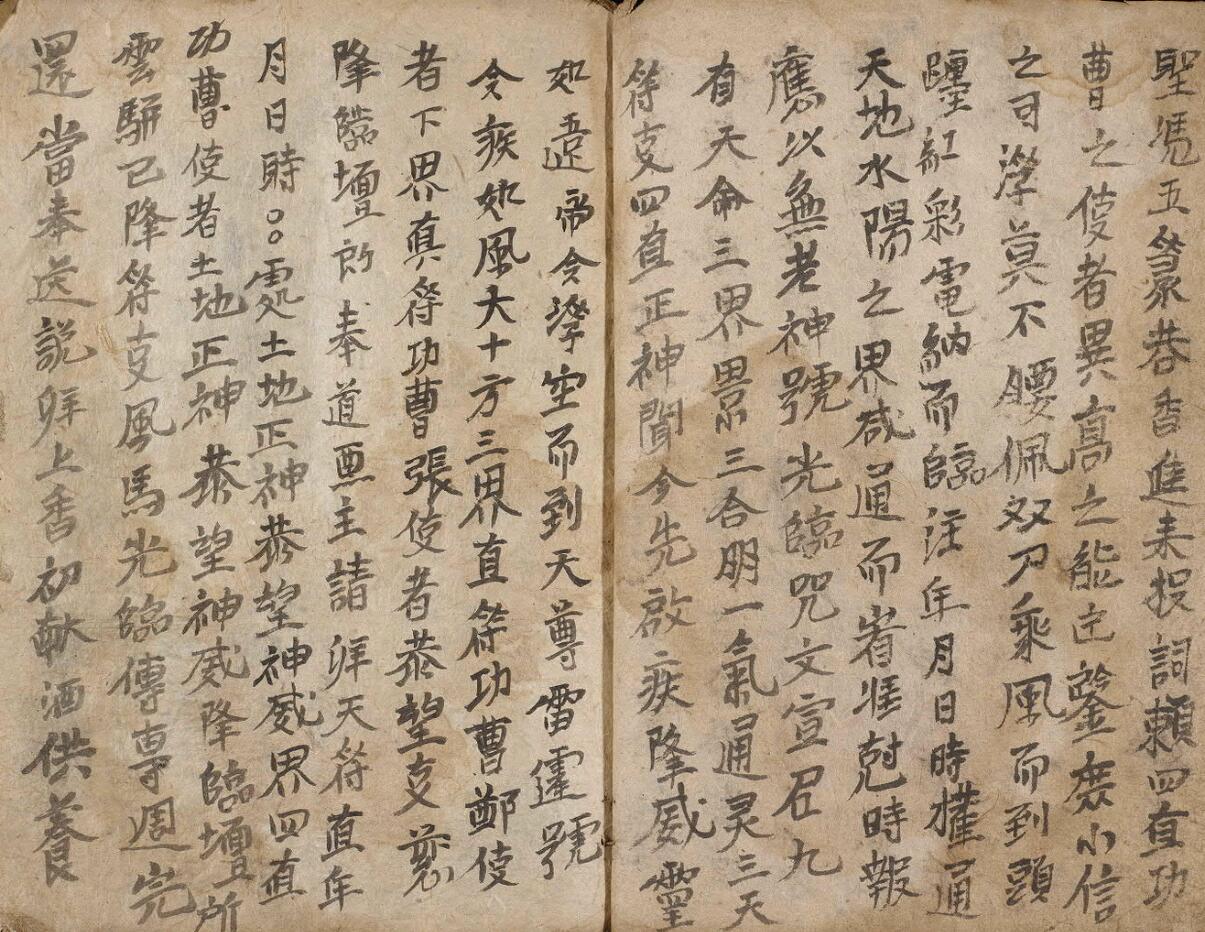 聖凴五篆巷香進未投詞頼四直功
曹之使者異髙之能迠鑒察小信
之司滐莫不腰佩双刀乘風而到頭
纏紅彩電納而臨注年月日時權通
天地水陽之界咸通而省准尅時報
應以無老神號光臨咒文宣召九
有天命三界景三合明一氣通灵三天
符吏四直正神聞今先啟疾降威靈
如違帝令滐空而到天尊雷霆號
令疾如風大十方三界直符功曹鄭使
者下界真符功曹張使者恭望吏慈
降臨壇所奉道恵主請拜天符直年
月日時〇〇處土地正神恭望神威界四直
功曹使者土地正神恭望神威降臨壇所
雲駢已降符吏風馬光臨傳専週完
還當奉送説拜上香初献酒供養